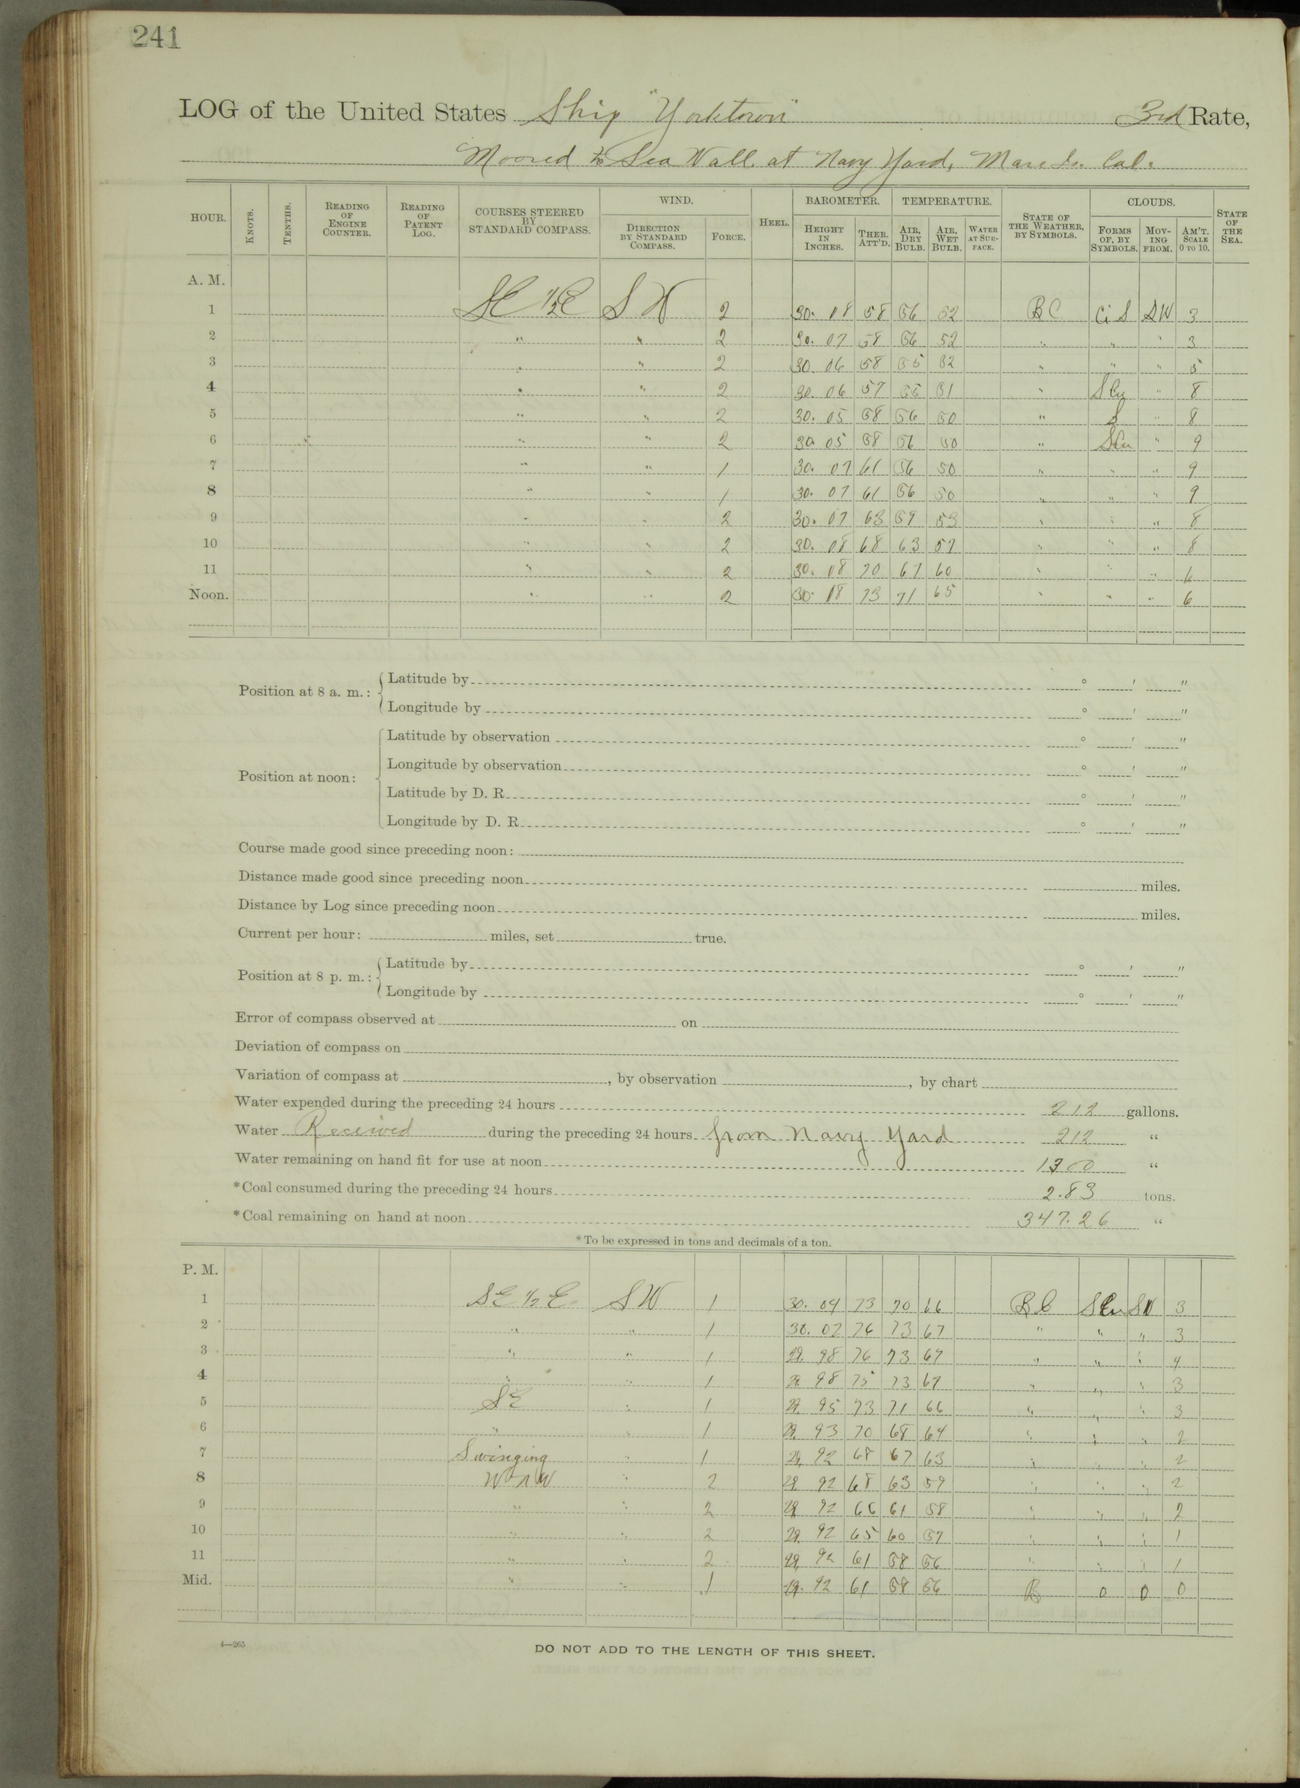 241
LOG of the United States Ship "Yorktown" 3rd Rate,
Moored to Sea Wall at Navy Yard, Mare Is. Cal.
HOUR. KNOTS. TENTHS. READING OF ENGINE COUNTER. READING OF PATENT LOG. COURSES STEERED BY STANDARD COMPASS. WIND. DIRECTION BY STANDARD COMPASS. FORCE. HEEL. BAROMETER. HEIGHT IN INCHES. THER. ATT'D. TEMPERATURE. AIR, DRY BULB. AIR, WET BULB. WATER AT SURFACE. STATE OF THE WEATHER, BY SYMBOLS. CLOUDS. FORMS OF, BY SYMBOLS. MOVING FROM. AM'T. SCALE 0 TO 10. STATE OF THE SEA.
A. M.
1 SE 1/2 E SW 2 30. 08 58 56 52 BC Ci S SW 3
2 " " 2 30. 07 58 56 52 " " " 3
3 " " 2 30. 06 58 55 52 " " " 5
4 " " 2 30. 06 57 55 51 " S Cu " 8
5 " " 2 30. 05 58 56 50 " S " 8
6 " " 2 30 05 58 56 50 " S Cu " 9
7 " " 1 30. 07 61 56 50 " " " 9
8 " " 1 30. 07 61 56 50 " " " 9
9 " " 2 30. 07 63 59 53 " " " 8
10 " " 2 30. 08 68 63 57 " " " 8
11 " " 2 30. 08 70 67 60 " " " 6
Noon. " " 2 30. 08 73 71 65 " " " 6
Position at 8 a. m.: Latitude by ° ′ ″
Longitude by ° ′ ″
Position at noon: Latitude by observation ° ′ ″
Longitude by observation ° ′ ″
Latitude by D. R. ° ′ ″
Longitude by D. R. ° ′ ″
Course made good since preceding noon:
Distance made good since preceding noon miles.
Distance by Log since preceding noon miles.
Current per hour: miles, set true.
Position at 8 p. m.: Latitude by ° ′ ″
Longitude by ° ′ ″
Error of compass observed at on
Deviation of compass on
Variation of compass at , by observation , by chart
Water expended during the preceding 24 hours 212 gallons.
Water Received during the preceding 24 hours from Navy Yard 212 "
Water remaining on hand fit for use at noon 1300 "
*Coal consumed during the preceding 24 hours 2.83 tons.
*Coal remaining on hand at noon 347.26 "
*To be expressed in tons and decimals of a ton.
P. M.
1 SE 1/2 E SW 1 30. 04 73 70 66 BC S Cu SW 3
2 " " 1 30. 02 76 73 67 " " " 3
3 " " 1 29. 98 76 73 67 " " " 4
4 " " 1 29. 98 75 73 67 " " " 3
5 SE " 1 29. 95 73 71 66 " " " 3
6 " " 1 29. 93 70 68 64 " " " 2
7 Swinging " 1 29. 92 68 67 63 " " " 2
8 WNW " 2 29. 92 68 63 59 " " " 2
9 " " 2 29. 92 66 61 58 " " " 2
10 " " 2 29. 92 65 60 57 " " " 1
11 " " 2 29. 92 61 58 56 " " " 1
Mid. " " 1 29. 92 61 58 56 B 0 0 0
4—265
DO NOT ADD TO THE LENGTH OF THIS SHEET.